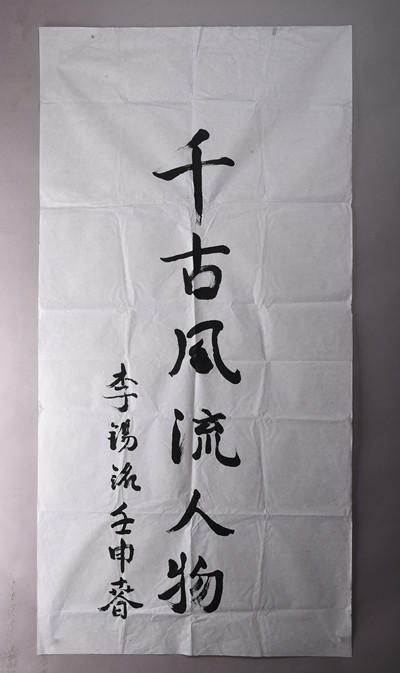 千古风流人物
李锡铭壬申春